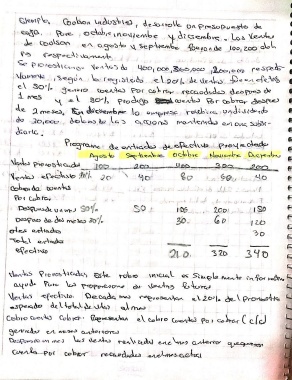 Ejemplo, Coolson Industries, desarrolla un presupuesto de
caja para octubre noviembre y diciembre. Las ventas
de Coolson en agosto y septiembre fueron de 100, 200 dolares
respectivamente.
Se pronosticaron ventas de 400,000, 300,000, 200,000
según lo registrado el 20% de ventas fueron efectos
el 50% genero cuentas por cobrar recaudadas despues de
1 mes y el 30% produjo cuentas por cobrar despues
de 2 meses, En diciembre la empresa recibira un dividendo
de 30,000 dolares de las acciones mantenida en una subsi-
diaria.
Programa de entradas de efectivo proyectado
Agosto Septiembre Octubre Noviembre Diciembre
Ventas pronosticadas 100 300 200
Ventas efectivas 20% 20 40 80 60 40
Cobranza cuentas
Por cobrar
Despues de un mes 50% 50 100 200 150
Despues de dos meses 30% 30 60 120
otras entradas 30
Total entrada
efectivo 210 320 340
Ventas Pronosticadas Este rubro inicial es simplemente informativo
ayuda para las proporciones de ventas futuras
Ventas efectivo representan el 20% del pronostico
esperado del total de ventas al mes
Cobro cuentas cobrar Representan el cobro cuentas por cobrar (c/c)
generado en meses anteriores
Despues un mes las ventas realizadas en el mes anterior que generaron
cuenta por cobrar recaudadas en el mes actual